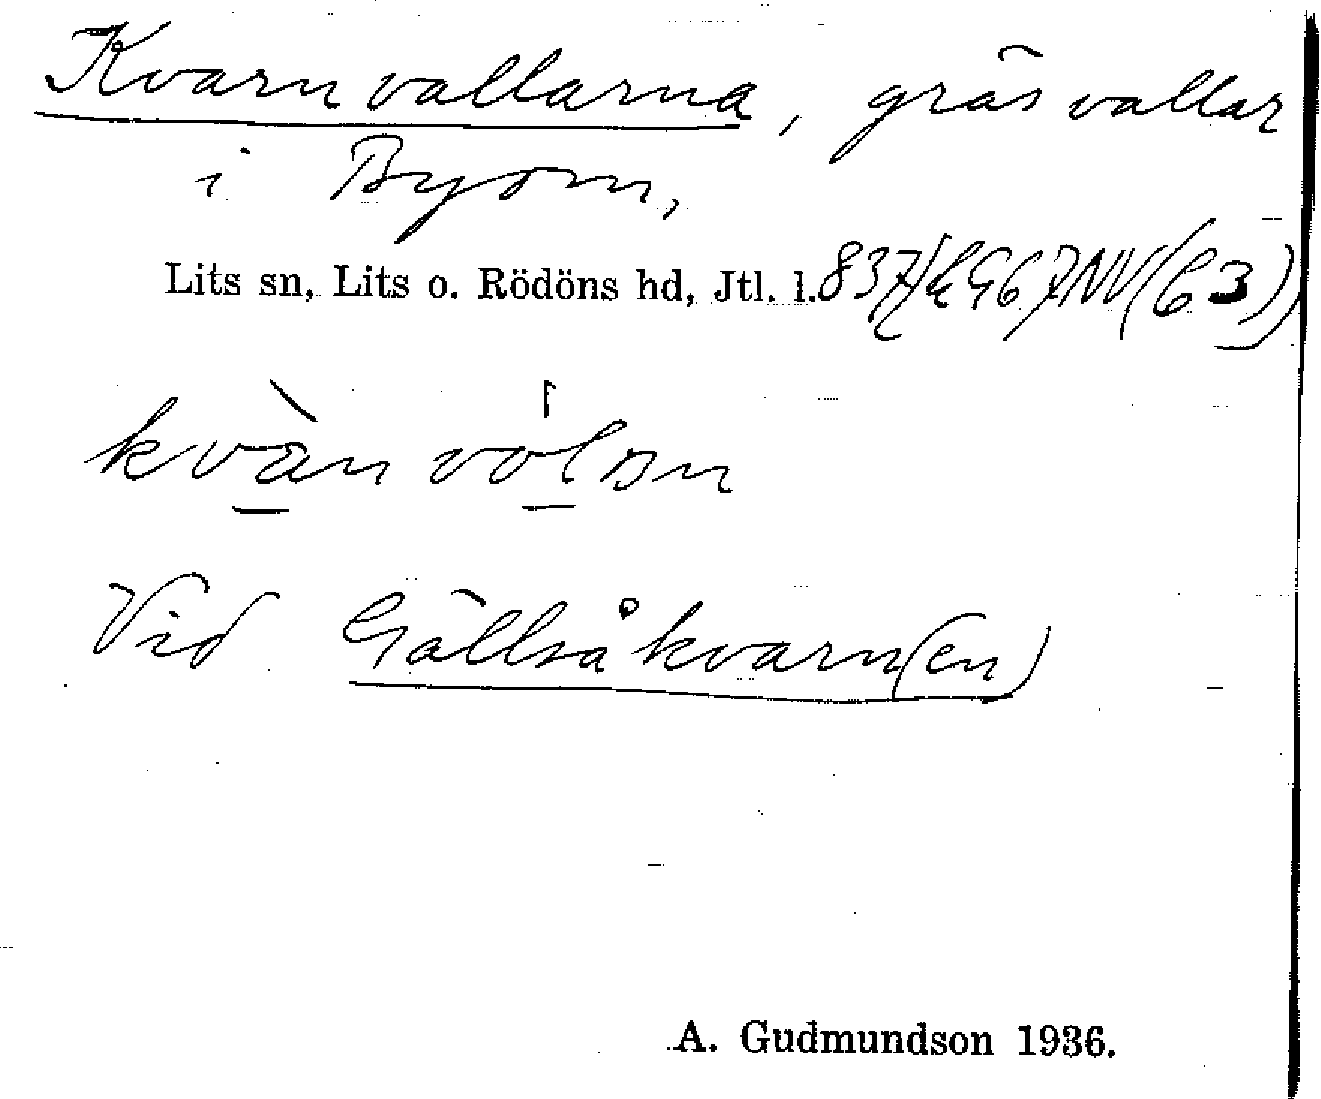 Kvarnvallarna, gräsvallar
i Byom,
Lits sn, Lits o. Rödöns hd, Jtl. l.
Vid Gällsåkvarn(en)
A. Gudmundson 1936.